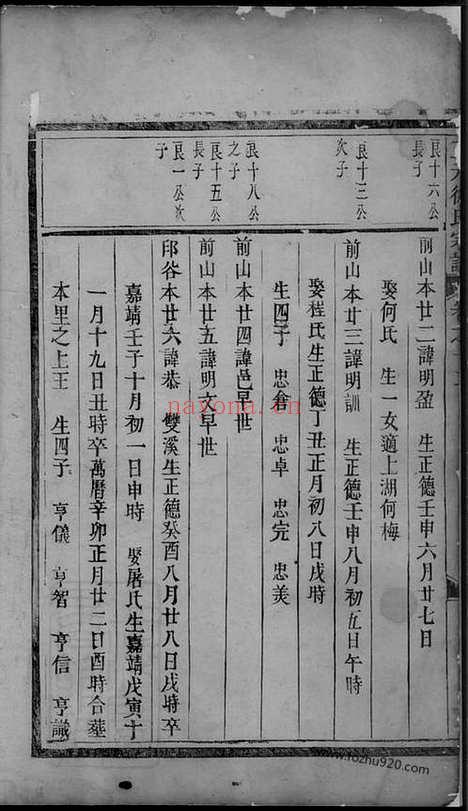 徐氏宗譜
良十六公
長子
前山本廿二諱明盈 生正德壬申六月廿七日
娶何氏 生一女適上湖何梅
良十三公
次子
前山本廿三諱明訓 生正德壬申八月初五日午時
娶程氏生正德丁丑正月初八日戌時
生四子 忠倉 忠卓 忠完 忠美
良十八公
之子
前山本廿四諱邑早世
良十五公
長子
前山本廿五諱明文早世
良一公次
子
印谷本廿六諱恭 雙溪生正德癸酉八月廿八日戌時卒
嘉靖壬子十月初一日申時 娶屠氏生嘉靖戊寅十
一月十九日丑時卒萬曆辛卯正月廿二日酉時合葬
本里之上王 生四子 亨儀 亨智 亨信 亨識
nayona.cn
www.fozhu920.com